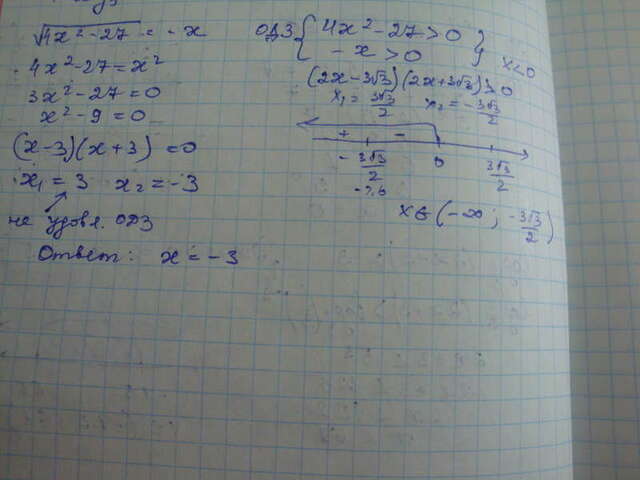 √4x² - 27 = - x
4x² - 27 = x²
3x² - 27 = 0
x² - 9 = 0
(x - 3)(x + 3) = 0
x₁ = 3 x₂ = -3
не удовл. ОДЗ
Ответ: x = - 3
ОДЗ { 4x² - 27 > 0
- x > 0 } x < 0
(2x - 3√3)(2x + 3√3) > 0
x₁ = 3√3/2 x₂ = - 3√3/2
+ -
- 3√3/2 0 3√3/2
-2,6
x ∈ (-∞; -3√3/2)